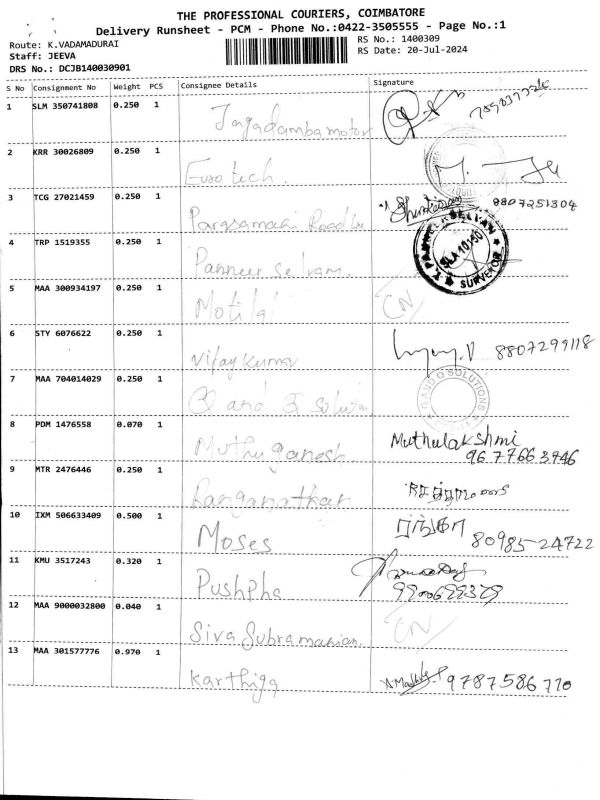 THE PROFESSIONAL COURIERS, COIMBATORE
Delivery Runsheet - PCM - Phone No.:0422-3505555 - Page No.:1
Route: K.VADAMADURAI
RS No.: 1400309
Staff: JEEVA
RS Date: 20-Jul-2024
DRS No.: DCJB140030901
S No Consignment No Weight PCS Consignee Details Signature
1 SLM 350741808 0.250 1 Jagadamba motor
2 KRR 30026809 0.250 1 Euro tech
3 TCG 27021459 0.250 1 8807251304
4 TRP 1519355 0.250 1 Panneer Selvam
SLA 10150
SURVEYOR
5 MAA 300934197 0.250 1 Motilal CN
6 STY 6076622 0.250 1 Vijay Kumar 8807299118
7 MAA 704014029 0.250 1 Q and Q Q AND Q SOLUTIONS
8 PDM 1476558 0.070 1 Muthu ganesh Muthulakshmi
96 7766 3946
9 MTR 2476446 0.250 1 Ranganathan
10 IXM 506633409 0.500 1 Moses 80985-24722
11 KMU 3517243 0.320 1 Pushpha
12 MAA 9000032800 0.040 1 Siva Subramanian CN
13 MAA 301577776 0.970 1 Karthiga 9787586770